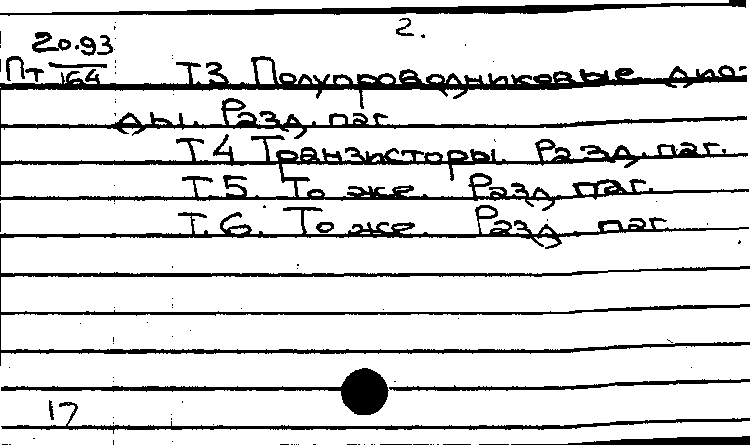 2.
20.93
Пт 164 Т.3 Полупроводниковые дио-
ды. Разд. паг.
Т.4 Транзисторы. Разд. паг.
Т.5. То же. Разд. паг.
Т.6. То же. Разд. паг.
17